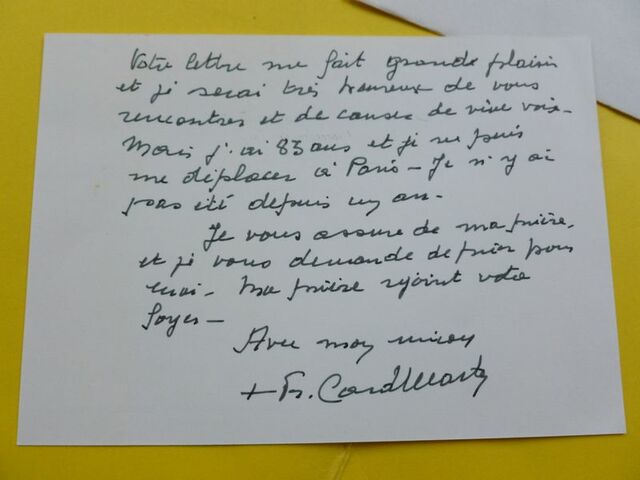 Votre lettre me fait grande plaisir
et je serai très heureux de vous
rencontrer et de causer de vive voix.
Mais j'ai 83 ans et je ne puis
me déplacer à Paris - Je n'y ai
pas été depuis un an.
Je vous assure de ma prière,
et je vous demande de prier pour
moi - Ma prière rejoint votre
foyer -
Avec mon union
+ Fr. Card Marty